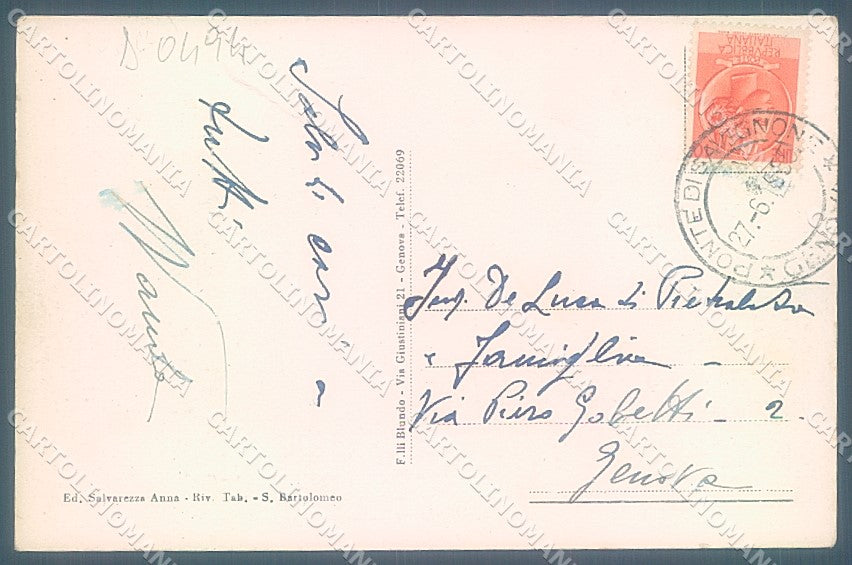 D 0494
Saluti cari
a tutti
F.lli Blundo - Via Giustiniani 21 - Genova - Telef. 22069
REPUBBLICA
ITALIANA
PONTE DI SAVIGNONE
27.-6.
Ing. De Luca di Pietralata
e Famiglia -
Via Piero Gobetti - 2.
Genova
Ed. Salvarezza Anna - Riv. Tab. - S. Bartolomeo
CARTOLINOMANIA